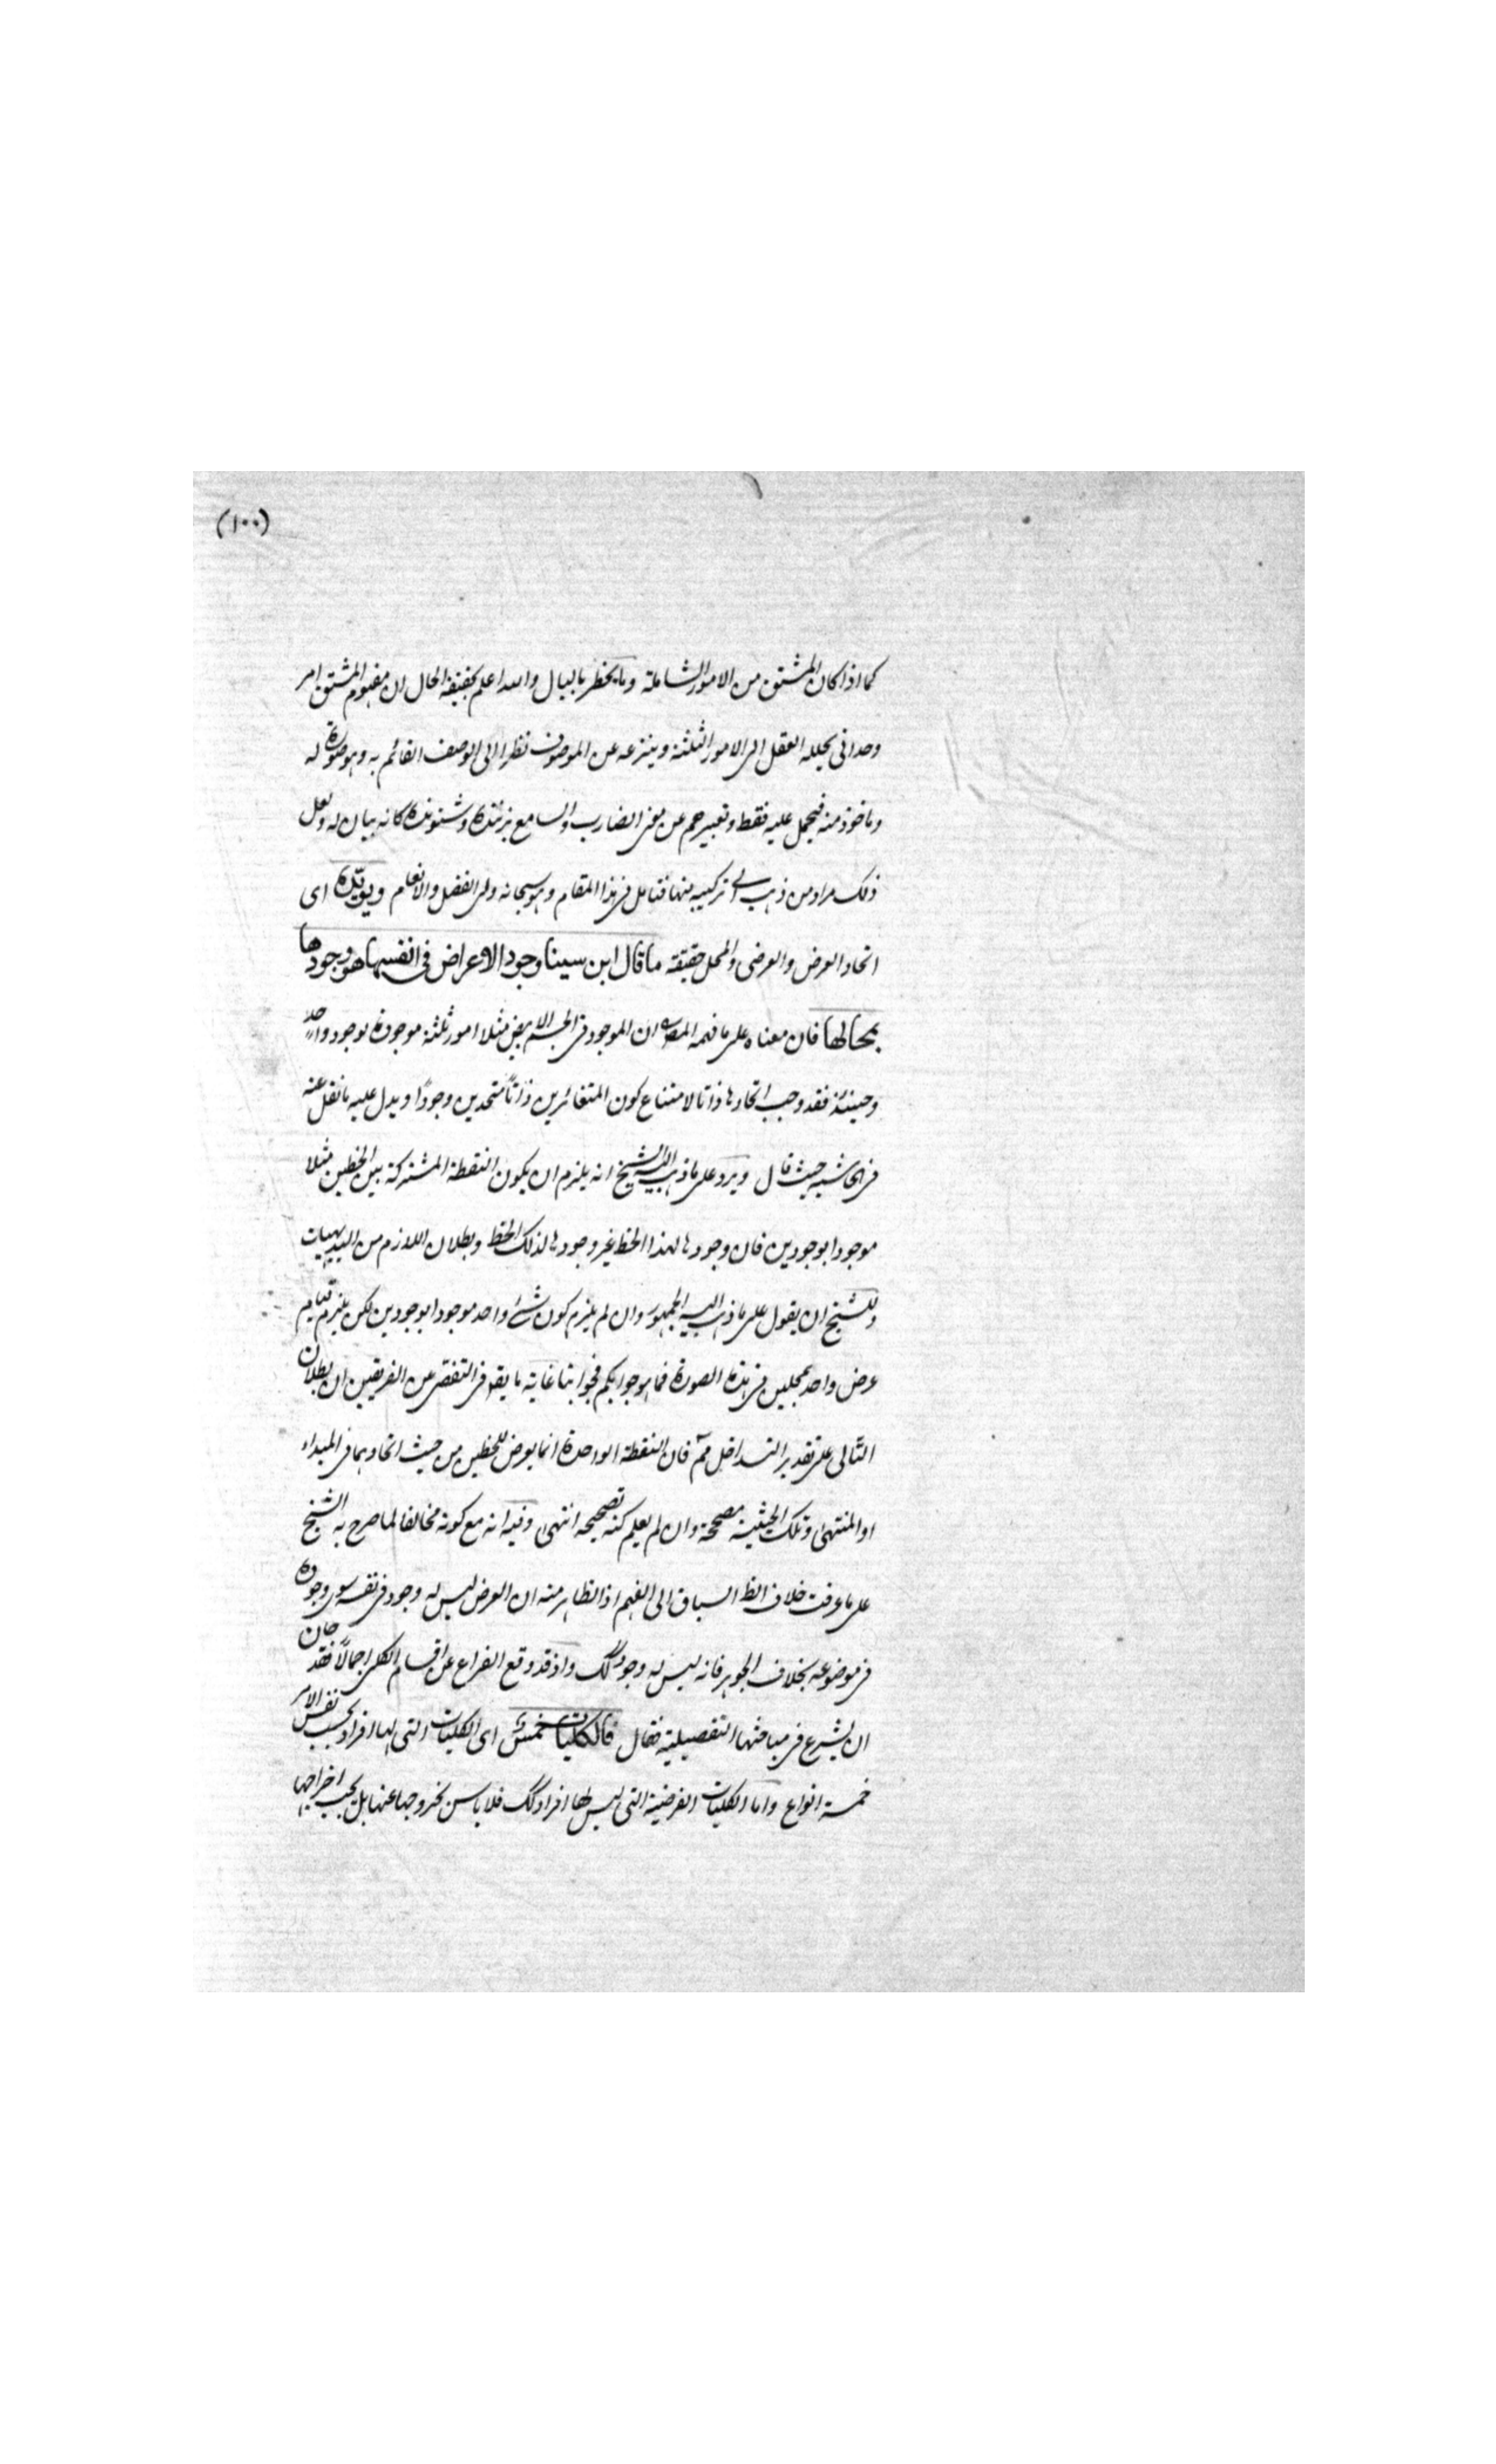 (١٠٠)
كما اذا كان المشتق من الامور الشاملة وما يخطر بالبال والله اعلم بحقيقة الحال ان مفهوم المشتق امر
وحدانى يحلله العقل الى الامور الثلثة وينزعه عن الموصوف نظرا الى الوصف القائم به وهو صورة له
وماخوذ منه فيحمل عليه فقط وتعبيرهم عن معنى الضارب والسامع بزننده وشنونده كانه بيان له ولعل
ذلك مراد من ذهب الى تركيبه منها فتامل فى هذا المقام وهو سبحانه ولى الفضل والانعام ويويده اى
اتحاد العرض والعرضى والمحل حقيقة ما قال ابن سينا وجود الاعراض فى انفسها هو وجودها
بمحالها فان معناه على ما فهمه المصره ان الموجود فى الجسم الابيض مثلا امور ثلثة موجودة بوجود واحد
وحينئذ فقد وجب اتحادها ذاتا لامتناع كون المتغائرين ذاتاً متحدين وجودًا ويدل عليه ما نقل عنه
فى الحاشية حيث قال ويرد على ما ذهب اليه الشيخ انه يلزم ان يكون النقطة المشتركة بين الخطين مثلا
موجودا بوجودين فان وجودها لهذا الخط غير وجودها لذلك الخط وبطلان اللازم من البديهيات
وللشيخ ان يقول على ما ذهب اليه الجمهور وان لم يلزم كون شئ واحد موجودا بوجودين لكن يلزم قيام
عرض واحد بمحلين فى هذه الصورة فما هو جوابكم فجوابنا غاية ما يقو فى التفصى عن الفريقين ان بطلان
التالى على تقدير التداخل مم فان النقطة الواحدة انما يعرض للخطين من حيث اتحادهما فى المبداء
او المنتهى وتلك الحيثية مصححة وان لم يعلم كنه تصحيحه انتهى وفيه انه مع كونه مخالفا لما صرح به الشيخ
على ما عرفت خلاف الظ السباق الى الفهم اذ الظاهر منه ان العرض ليس له وجود فى نفسه سوى وجوده
فى موضوعه بخلاف الجوهر فانه ليس له وجود كك واذ قد وقع الفراغ عن اقسام الكلى اجمالاً فقد حان
ان يشرع فى مباحثها التفصيلية فقال فالكليات خمس اى الكليات التى لها افراد بحسب نفس الامر
خمسة انواع واما الكليات الفرضية التى ليس لها افراد كك فلا باس بخروجها عنها بل يجب اخراجها